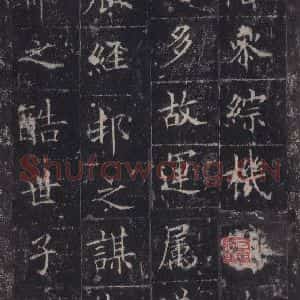 綜機
多故運属
經邦之謀
之酷世子
Shufawang.CN